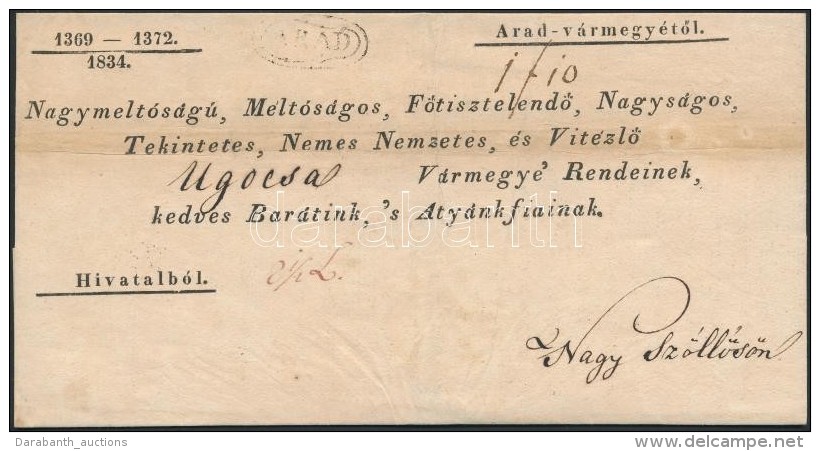 1369 — 1372.
1834.
ARAD
Arad-vármegyétől.
Nagymeltóságú, Méltóságos, Fötisztelendö, Nagyságos,
Tekintetes, Nemes Nemzetes, és Vitézlö
Ugocsa Vármegye' Rendeinek,
kedves Barátink, 's Atyánkfiainak.
darabanth
Hivatalból.
Nagy Szőllősön
Darabanth_auctions
© delcampe.net